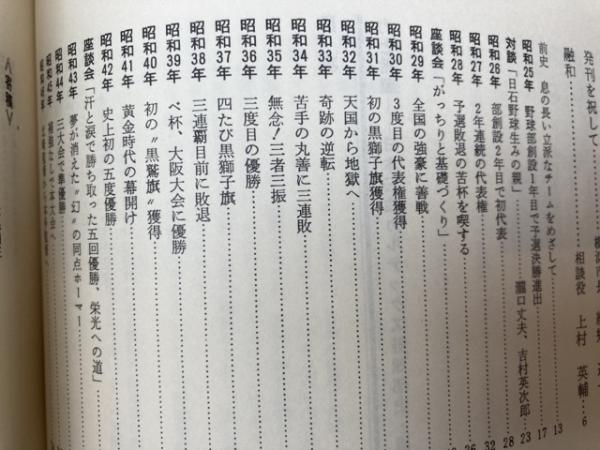 発刊を祝して
融和 相談役 上村英輔 6
前史 息の長い立派なチームをめざして 13
昭和25年 野球部創設1年目で予選決勝進出 17
対談「日石野球生みの親」 瀧口丈夫、吉村英次郎 23
昭和26年 部創設2年目で初代表 28
昭和27年 2年連続の代表権 32
昭和28年 予選敗退の苦杯を喫する
座談会「がっちりと基礎づくり」
昭和29年 全国の強豪に善戦
昭和30年 3度目の代表権獲得
昭和31年 初の黒獅子旗獲得
昭和32年 天国から地獄へ
昭和33年 奇跡の逆転
昭和34年 苦手の丸善に三連敗
昭和35年 無念!三者三振
昭和36年 三度目の優勝
昭和37年 四たび黒獅子旗
昭和38年 三連覇目前に敗退
昭和39年 ベ杯、大阪大会に優勝
昭和40年 初の"黒鷲旗"獲得
昭和41年 黄金時代の幕開け
昭和42年 史上初の五度優勝
座談会「汗と涙で勝ち取った五回優勝、栄光への道」
昭和43年 夢が消えた"幻"の同点ホーマー
昭和44年 三大会で準優勝
昭和45年 補強なしで本大会へ